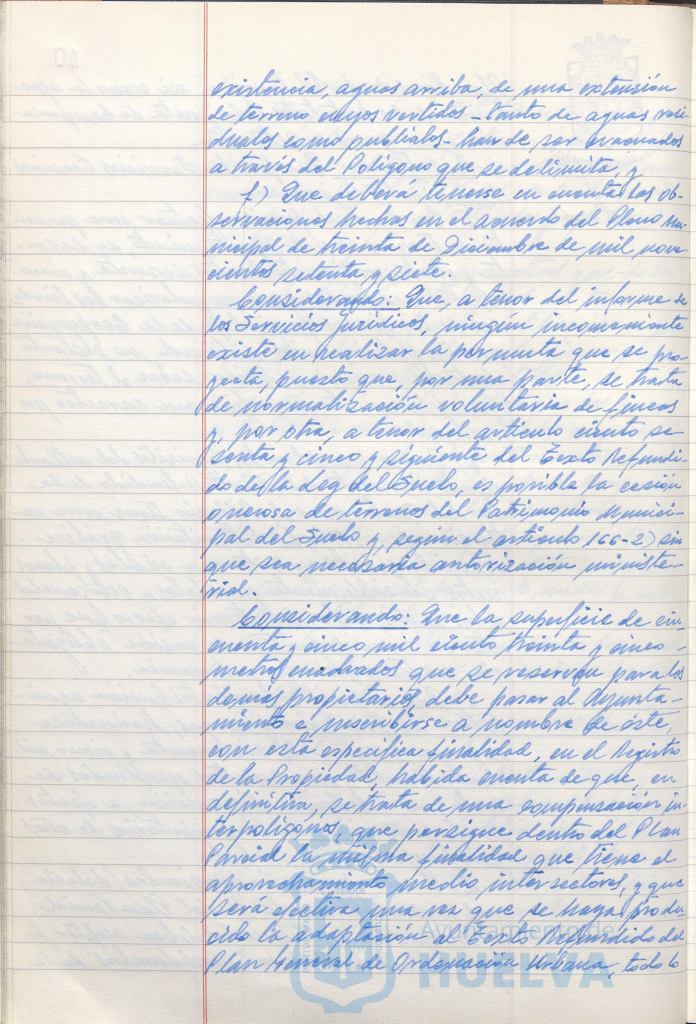 existencia, aguas arriba, de una extensión
de terreno cuyos vertidos - tanto de aguas resi
duales como publiales - han de ser evacuados
a través del Polígono que se delimita, y
f) Que deberá tenerse en cuenta las ob-
servaciones hechas en el acuerdo del Pleno Mu
nicipal de treinta de Diciembre de mil nove
cientos setenta y siete.
Considerando: Que, a tenor del informe de
los Servicios Jurídicos, ningún inconveniente
existe en realizar la permuta que se pro-
yecta, puesto que, por una parte, se trata
de normalización voluntaria de fincas
y, por otra, a tenor del artículo ciento se-
senta y cinco y siguiente del Texto Refundi-
do de la Ley del Suelo, es posible la cesión
onerosa de terrenos del Patrimonio Munici-
pal del Suelo y, según el artículo 166-2) sin
que sea necesaria autorización ministe-
rial.
Considerando: Que la superficie de cin-
cuenta y cinco mil ciento treinta y cinco -
metros cuadrados que se reservan para los
demás propietarios, debe pasar al Ayunta-
miento e inscribirse a nombre de éste,
con esta específica finalidad, en el Registro
de la Propiedad, habida cuenta de que, en
definitiva, se trata de una compensación in-
terpolígonos, que persigue dentro del Plan
Parcial la misma finalidad que tiene el
aprovechamiento medio intersectores, y que
será efectiva una vez que se haya produ-
cido la adaptación al Texto Refundido del
Plan General de Ordenación Urbana, todo lo
Ayuntamiento de
HUELVA